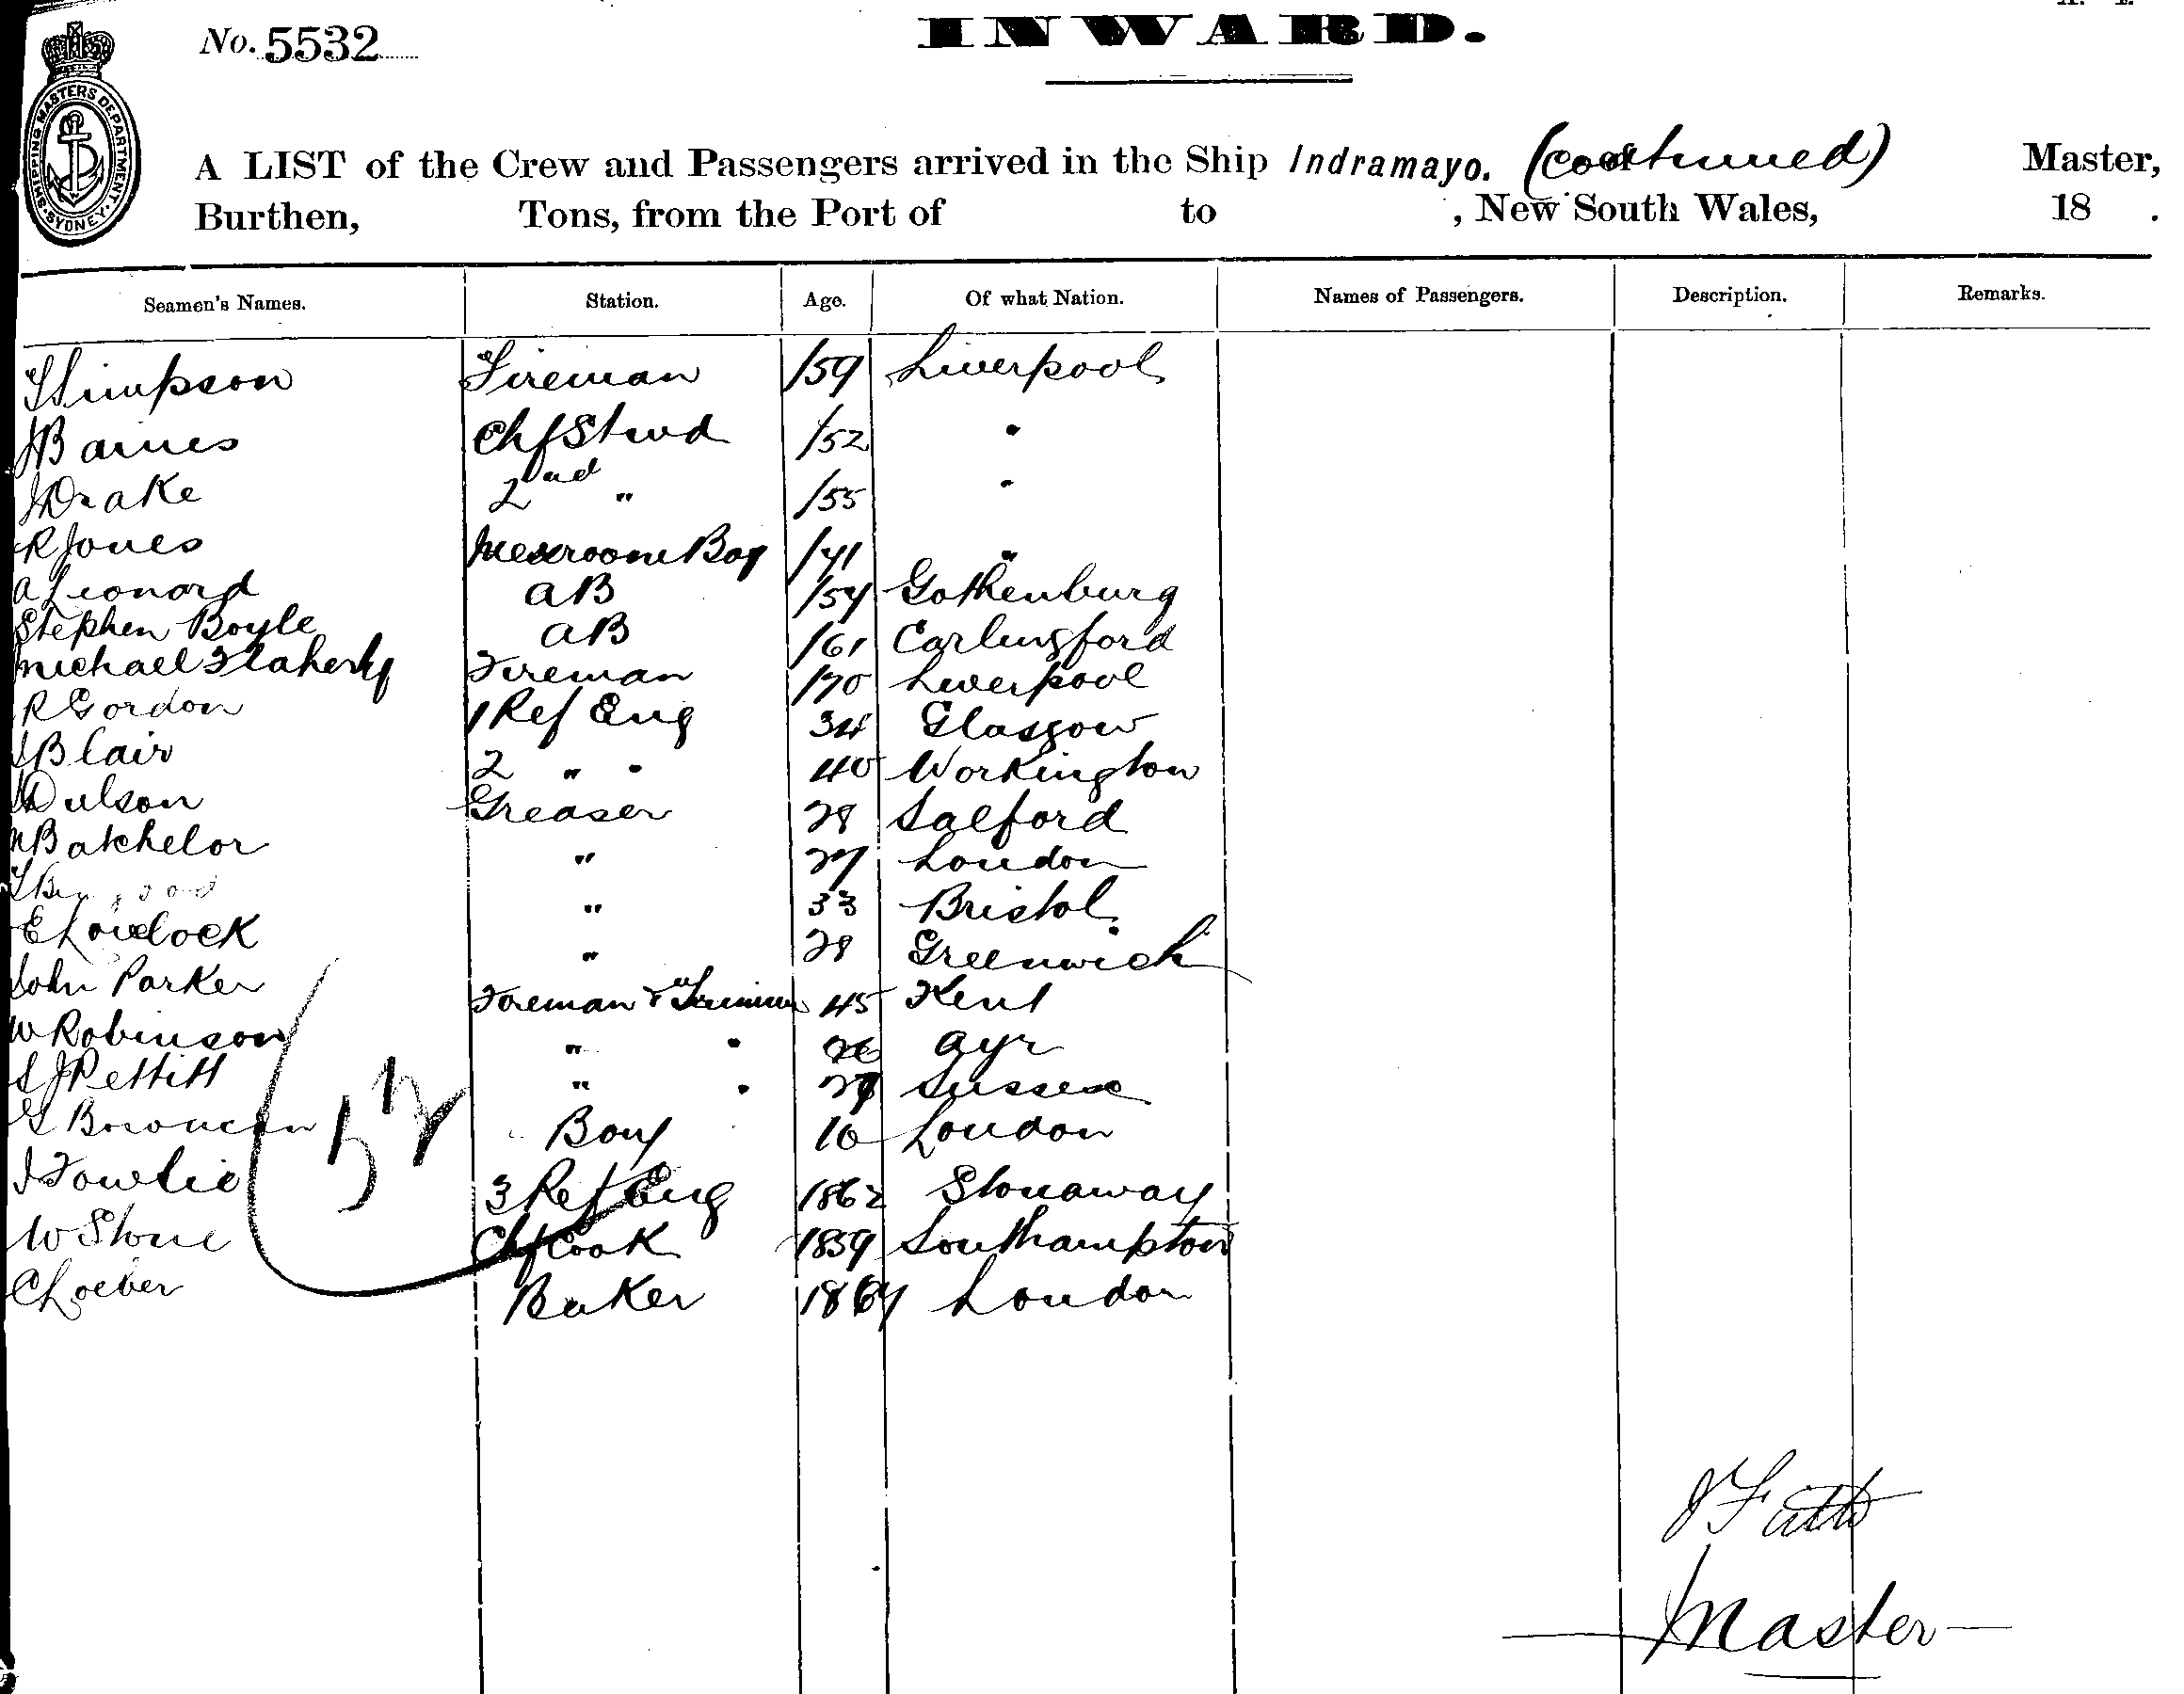 No. 5532
INWARD.
SHIPPING MASTERS DEPARTMENT. SYDNEY
A LIST of the Crew and Passengers arrived in the Ship Indramayo. (continued) Master,
Burthen, Tons, from the Port of to , New South Wales, 18 .
Seamen's Names. Station. Age. Of what Nation. Names of Passengers. Description. Remarks.
Simpson Fireman /59 Liverpool
J Barnes Chf Stwd /52 "
J Drake 2nd " /55 "
R Jones Messroom Boy /71 "
A Leonard AB /54 Gothenburg
Stephen Boyle AB /61 Carlingford
Michael Flaherty Fireman /70 Liverpool
R Gordon 1 Ref Eng 34 Glasgow
J Blair 2 " " 40 Workington
Dulson Greaser 28 Salford
Batchelor " 27 London
" 33 Bristol
E Lovelock " 28 Greenwich
John Parker Fireman & Trimmer 45 Kent
W Robinson " " 26 Ayr
S J Pettitt " " Sussex
G Bowman Boy 16 London
J Fowlie 3 Ref Eng 1862 Stonaway
W Stone Chf Cook 1859 Southampton
C Loeber Baker 1864 London
52
J F
Master